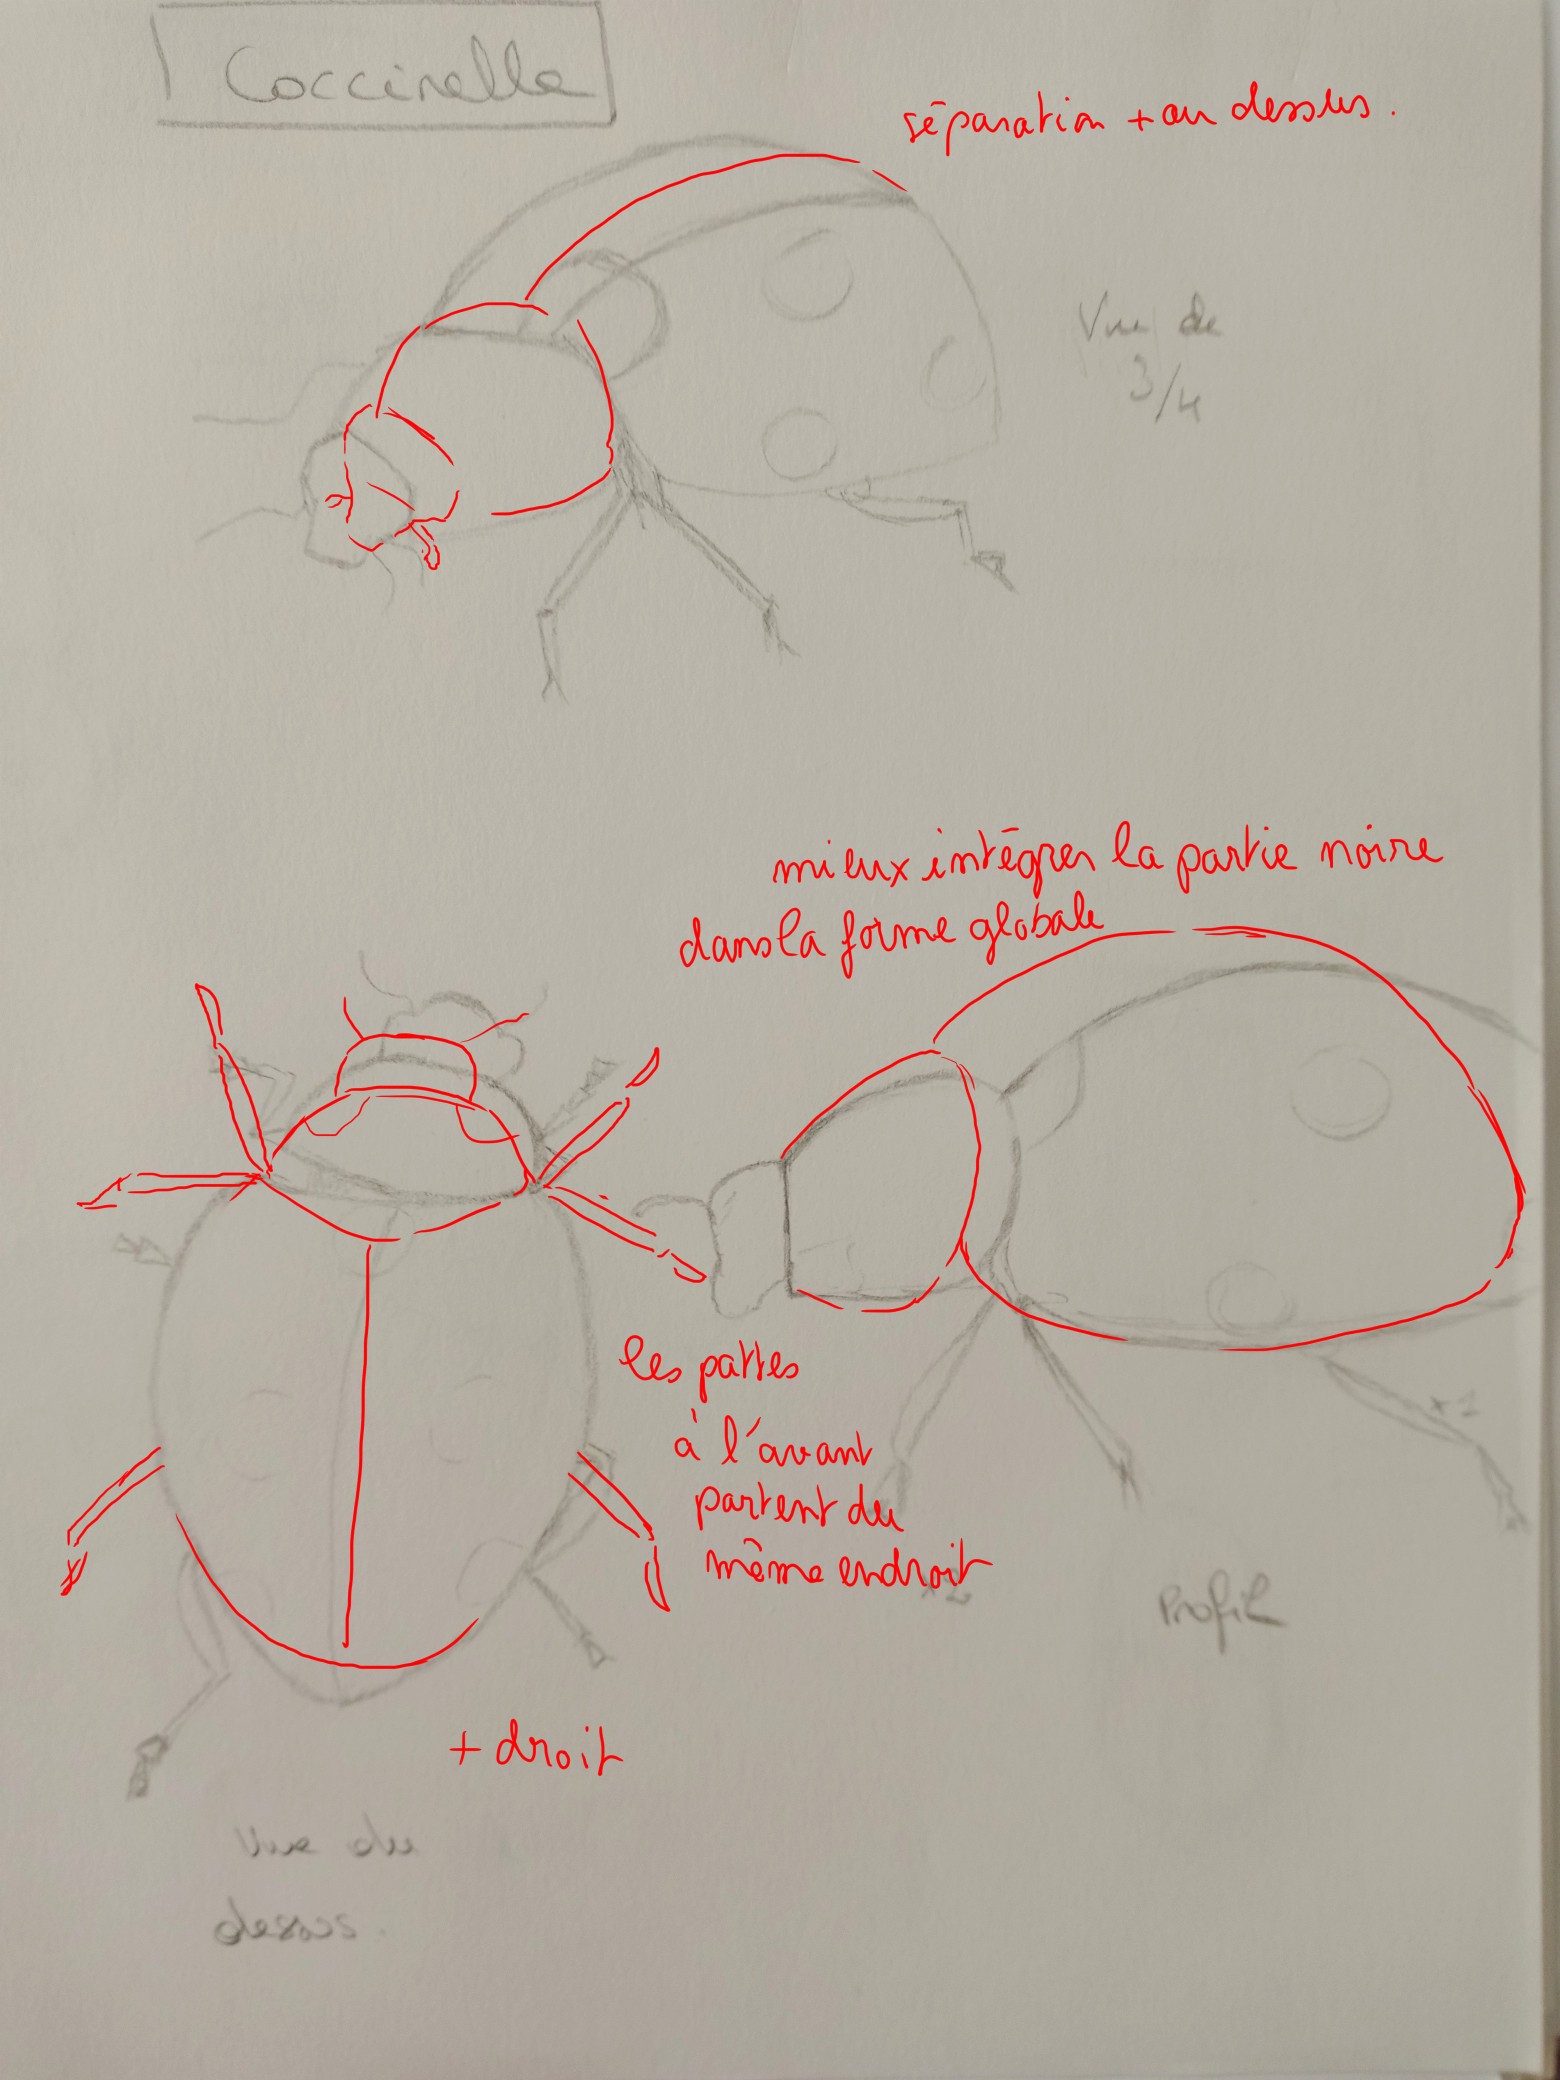 Coccinelle
séparation + au dessus.
Vue de
3/4
mieux intégrer la partie noire
dans la forme globale
les pattes
à l'avant
partent du
même endroit
x1
x2
Profil
+ droit
Vue du
dessus.